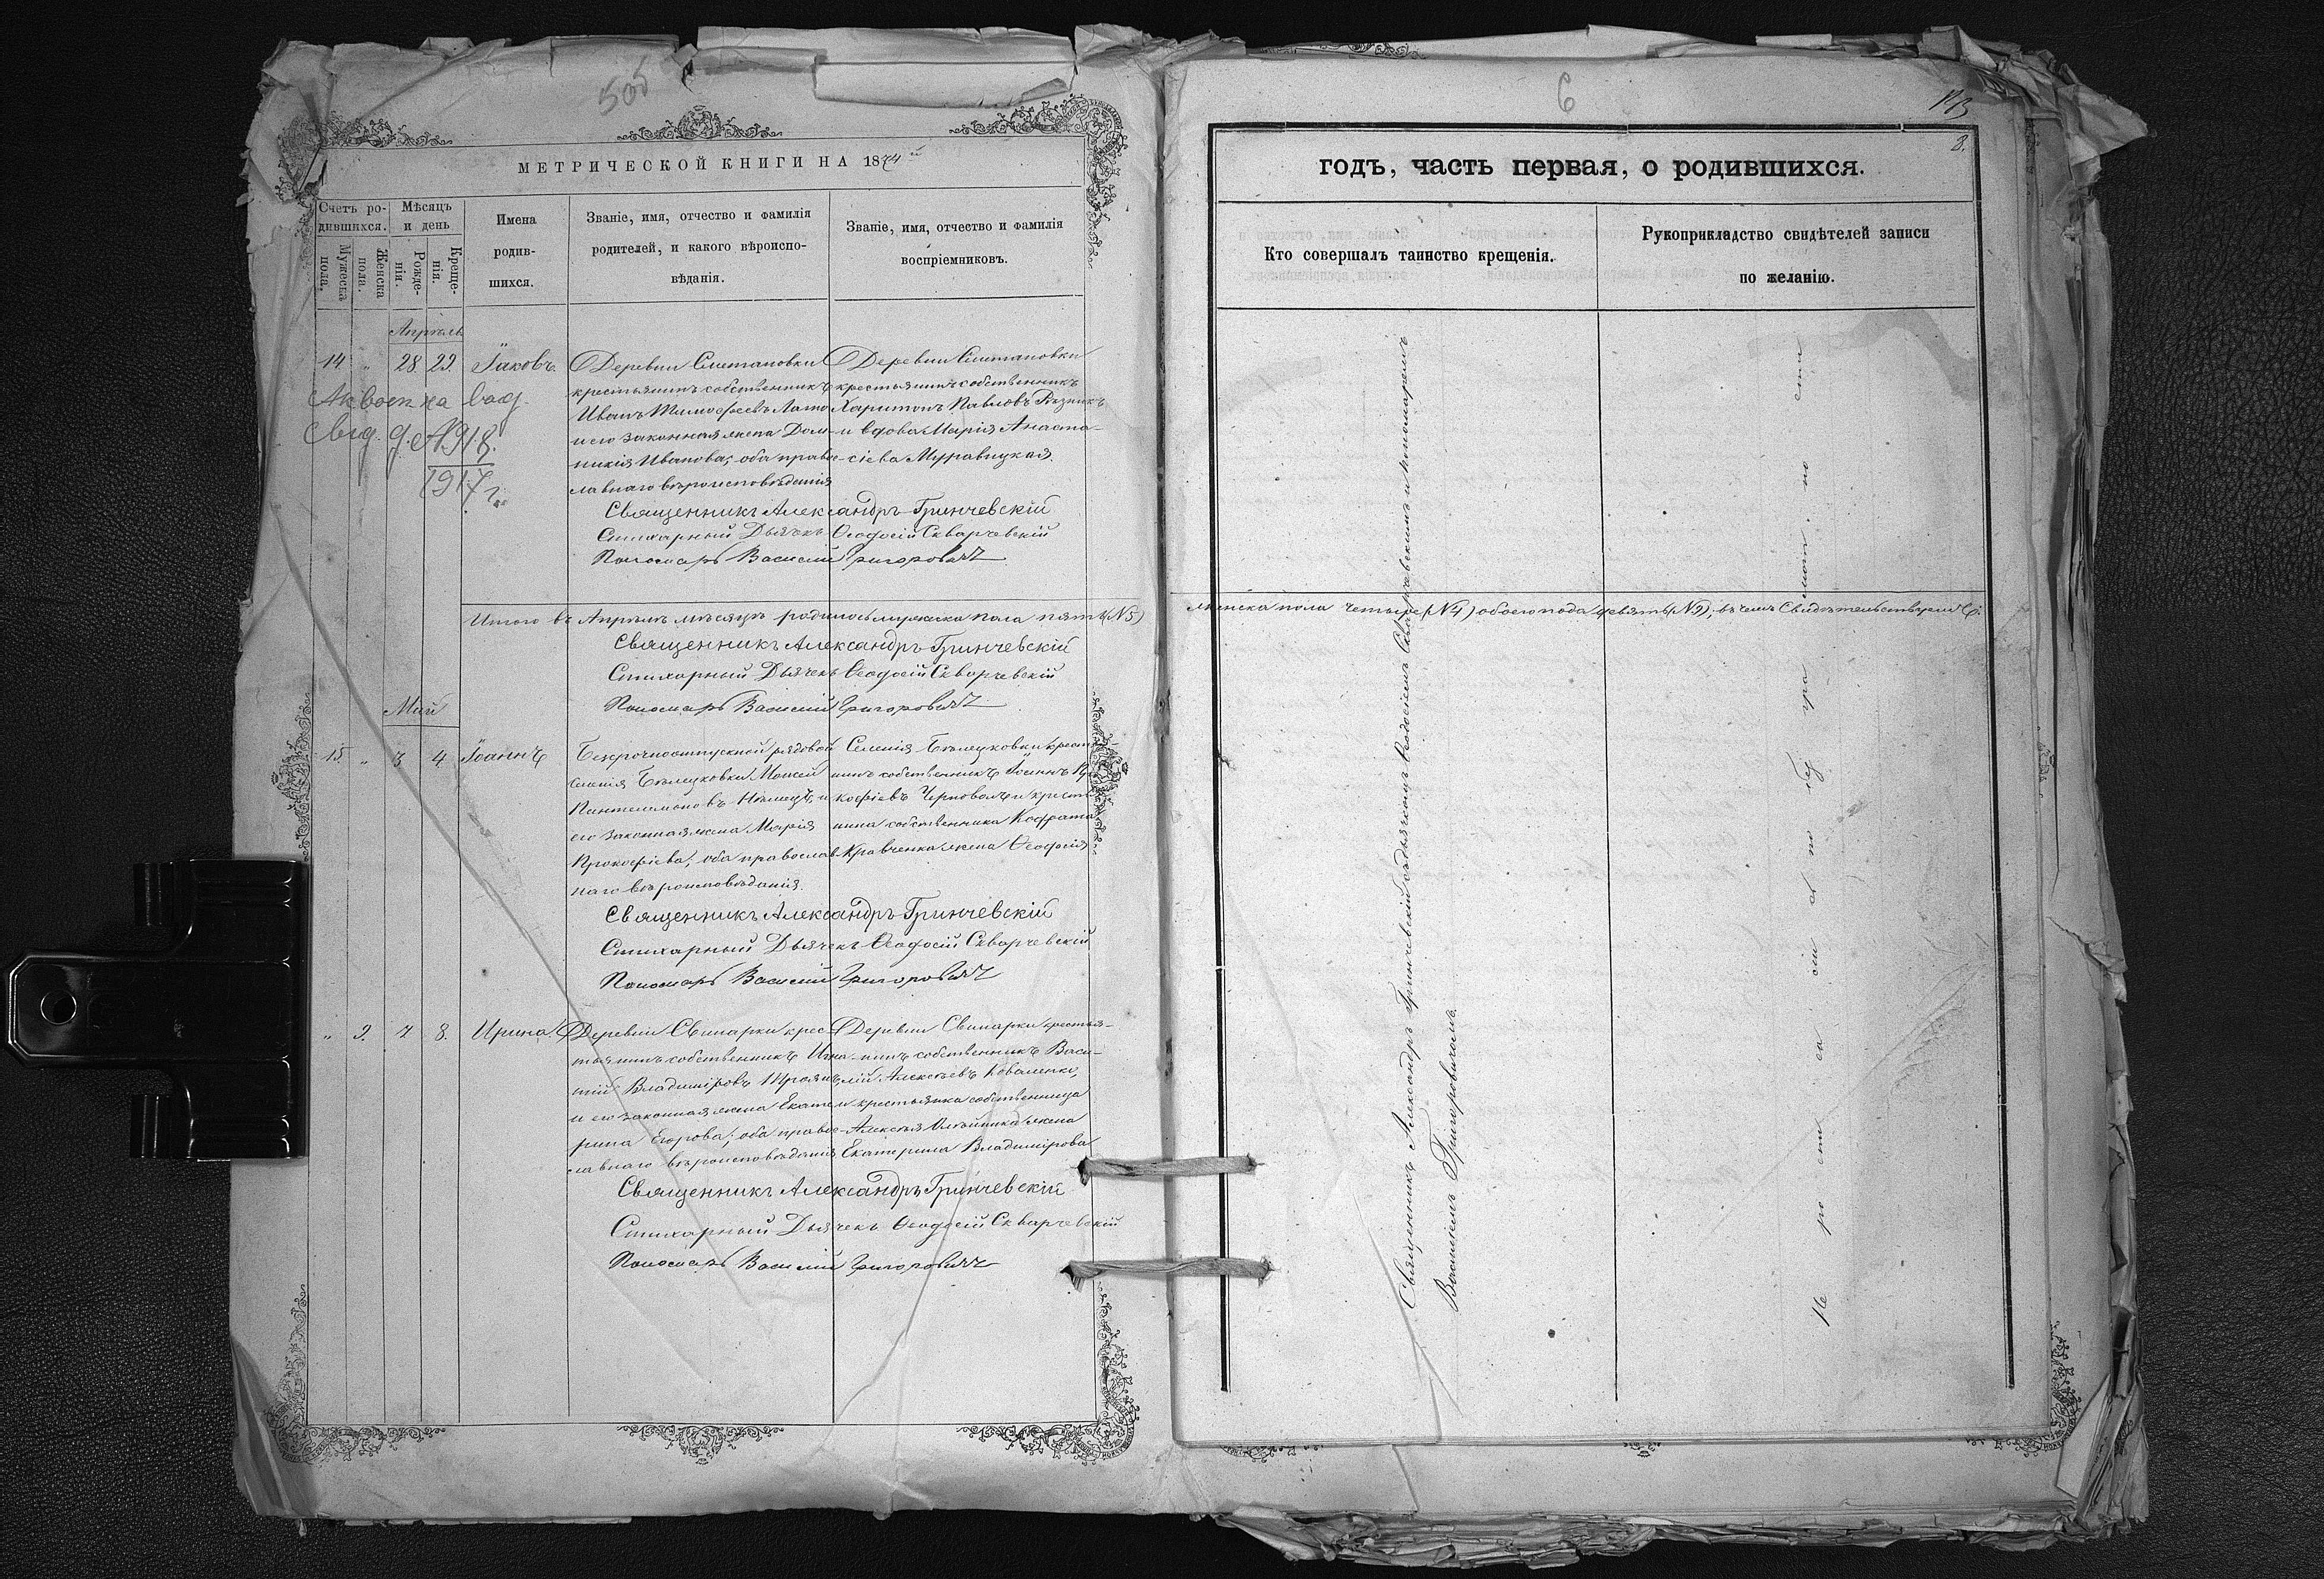 505
МЕТРИЧЕСКОЙ КНИГИ НА 1874й
Счетъ ро-
дившихся.
Мѣсяцъ
и день
Мужеска
пола.
Женска
пола.
Рожде-
нія.
Креще-
нія.
Имена
родив-
шихся.
Званіе, имя, отчество и фамилія
родителей, и какого вѣроиспо-
вѣданія.
Званіе, имя, отчество и фамилія
воспріемниковъ.
Апрѣль
14 „ 28 29. Іаковъ.
Деревни Сметановки
крестьянинъ собственникъ
Иванъ Тимофеевъ
и его законная жена Дом-
никія Иванова; оба право-
славнаго вѣроисповѣданія
Деревни Сметановки
крестьянинъ собственникъ
Харитонъ Павловъ
и вдова Марія Анаста-
сіева Муравицкая.
на
1917 г.
Священникъ Александръ Гринчевскій
Стихарный Дьячекъ Ѳеодосій Скварчевскій
Пономарь Василій Григоровичъ
Итого въ Апрѣлѣ мѣсяцѣ родилось мужеска пола пять (№5)
Священникъ Александръ Гринчевскій
Стихарный Дьячекъ Ѳеодосій Скварчевскій
Пономарь Василій Григоровичъ
Май
15. „ 3 4. Іоаннъ
Безсрочноотпускной рядовой
селенія Бѣлецковки Моисей
Пантелимоновъ Нѣмецъ, и
его законная жена Марія
Прокофіева, оба православ-
наго вѣроисповѣданія.
Селенія Бѣлецковки крестья-
нинъ собственникъ Іоаннъ
кофіевъ и крестья-
нина собственника Кодрата
Кравченка жена Ѳеодосія
Священникъ Александръ Гринчевскій
Стихарный Дьячекъ Ѳеодосій Скварчевскій
Пономарь Василій Григоровичъ
„ 9. 7 8. Ирина.
Деревни Свинарки крес-
тьянинъ собственникъ Игна-
тій Владиміровъ Троянъ,
и его законная жена Екате-
рина Егорова; оба право-
славнаго вѣроисповѣданія
Деревни Свинарки крестья-
нинъ собственникъ Васи-
лій Алексѣевъ Коваленко,
и крестьянка собственница
Алексѣя Олѣйника жена
Екатерина Владимірова
Священникъ Александръ Гринчевскій
Стихарный Дьячекъ Ѳеодосій Скварчевскій
Пономарь Василій Григоровичъ
6
8.
годъ, часть первая, о родившихся.
Кто совершалъ таинство крещенія.
Рукоприкладство свидѣтелей записи
по желанію.
женска пола четыре (№4) обоего пола девять (№9), въ чемъ свидѣтельствуемъ:
Священникъ Александръ Гринчевскій съ дьячкомъ Ѳеодосіемъ Скварчевскимъ и пономаремъ
Василіемъ Григоровичемъ.